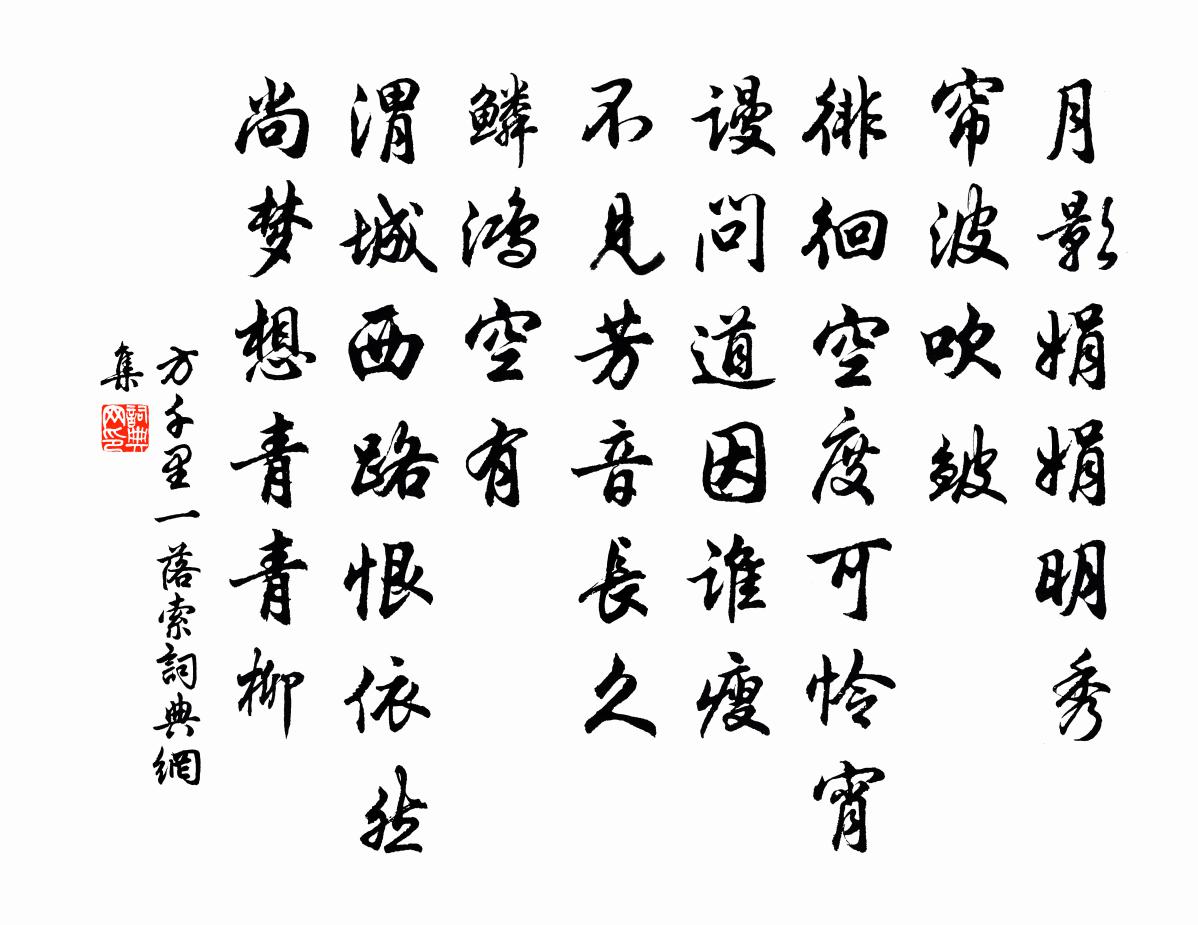 月影娟娟明秀
帘波吹皱
徘徊空度可怜宵
谩问道因谁瘦
不见芳音長久
鳞鸿空有
渭城西路恨依然
尚梦想青青柳
方千里一落索詞典網
集
詞典
网印